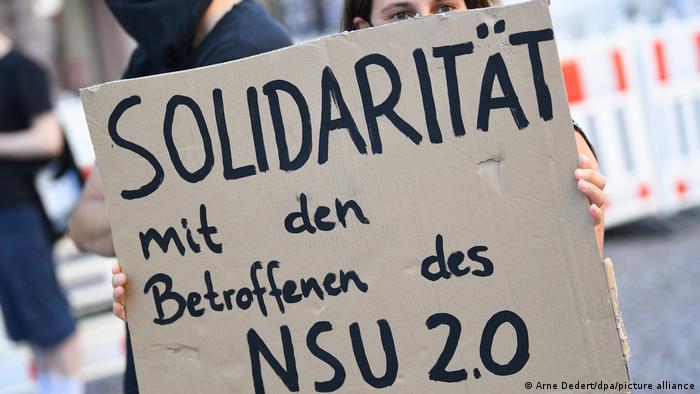 SOLIDARITÄT
mit den
Betroffenen des
NSU 2.0
© Arne Dedert/dpa/picture alliance